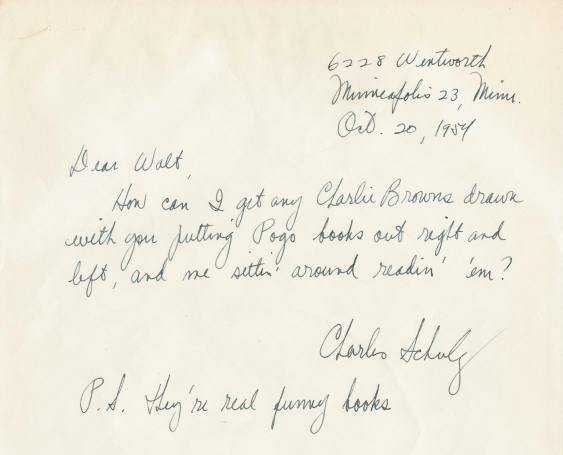 6228 Wentworth
Minneapolis 23, Minn.
Oct. 20, 1954
Dear Walt,
How can I get any Charlie Browns drawn
with you putting Pogo books out right and
left, and me sittin' around readin' 'em?
Charles Schulz
P.S. They're real funny books